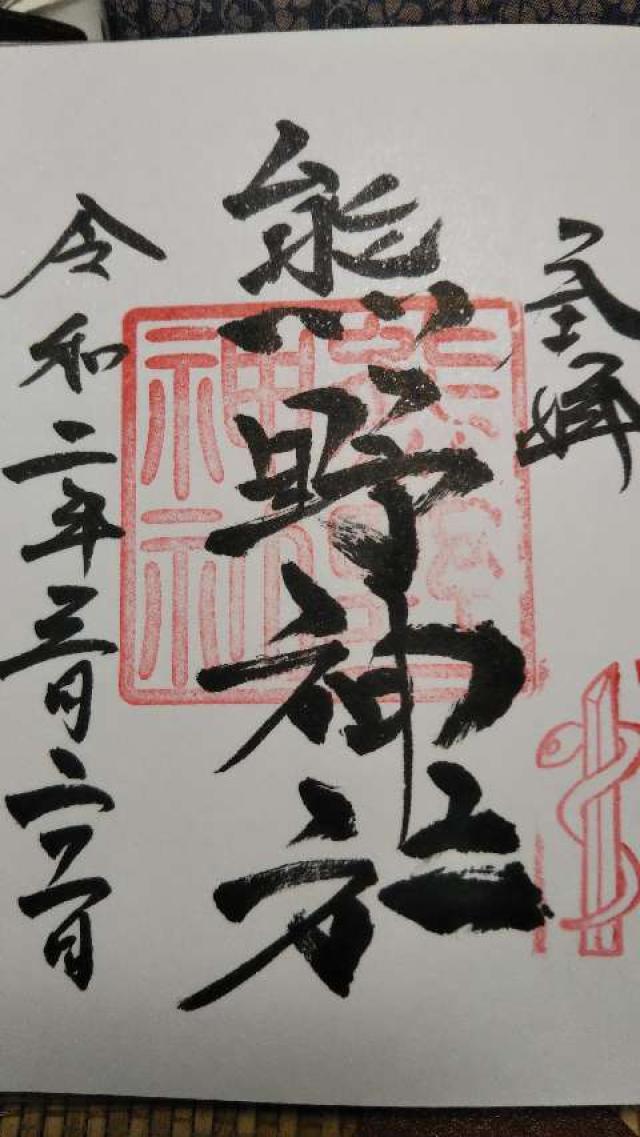 奉拝
熊野神社
令和二年三月二十一日
熊野
神社